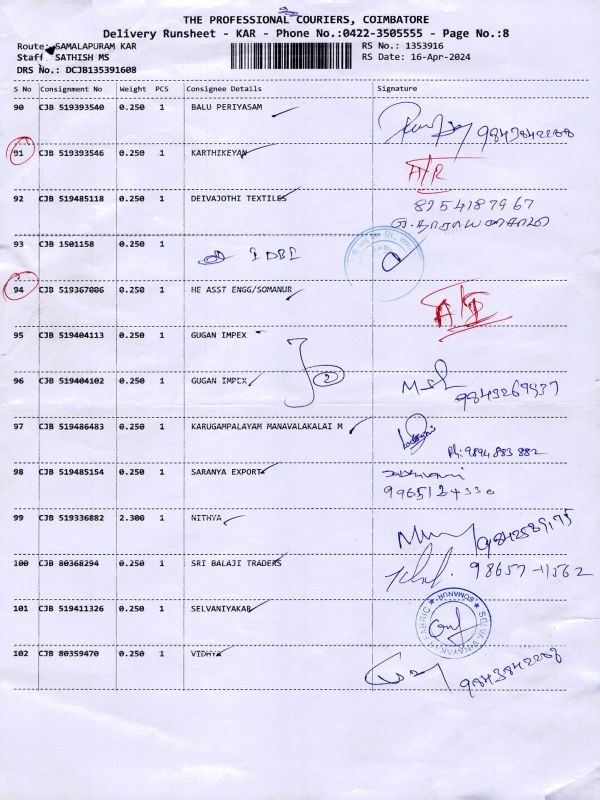 THE PROFESSIONAL COURIERS, COIMBATORE
Delivery Runsheet - KAR - Phone No.:0422-3505555 - Page No.:8
Route: SAMALAPURAM KAR
RS No.: 1353916
Staff SATHISH MS
RS Date: 16-Apr-2024
DRS No.: DCJB135391608
S No Consignment No Weight PCS Consignee Details Signature
90 CJB 519393540 0.250 1 BALU PERIYASAM
9843842208
91 CJB 519393546 0.250 1 KARTHIKEYAN
92 CJB 519485118 0.250 1 DEIVAJOTHI TEXTILES 8254187967
93 CJB 1501158 0.250 1
IDBI
94 CJB 519367006 0.250 1 HE ASST ENGG/SOMANUR
95 CJB 519404113 0.250 1 GUGAN IMPEX
2
96 CJB 519404102 0.250 1 GUGAN IMPEX
9843269937
97 CJB 519486483 0.250 1 KARUGAMPALAYAM MANAVALAKALAI M
Ph: 9894 883 882
98 CJB 519485154 0.250 1 SARANYA EXPORT
9965124330
99 CJB 519336882 2.300 1 NITHYA
9842589175
100 CJB 80368294 0.250 1 SRI BALAJI TRADERS 98657-11562
101 CJB 519411326 0.250 1 SELVANIYAKAR
SELVA VINAYAKAR FABRIC
SOMANUR
102 CJB 80359470 0.250 1 VIDHYA
9843842208